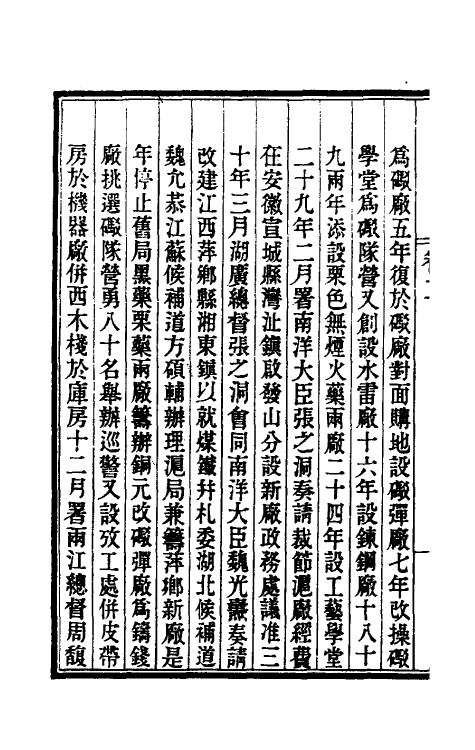 爲礮廠五年復於礮廠對面購地設礮彈廠七年改操礮
學堂爲礮隊營又創設水雷廠十六年設鍊鋼廠十八十
九兩年添設栗色無煙火藥兩廠二十四年設工藝學堂
二十九年二月署南洋大臣張之洞奏請裁節滬廠經費
在安徽宣城縣灣沚鎭啟發山分設新廠政務處議准三
十年三月湖廣總督張之洞會同南洋大臣魏光燾奏請
改建江西萍鄉縣湘東鎭以就煤鐵幷札委湖北候補道
魏允恭江蘇候補道方碩輔辦理滬局兼籌萍鄉新廠是
年停止舊局黑藥栗藥兩廠籌辦銅元改礮彈廠爲鑄錢
廠挑選礮隊營勇八十名舉辦巡警又設攷工處併皮帶
房於機器廠併西木棧於庫房十二月署兩江總督周馥